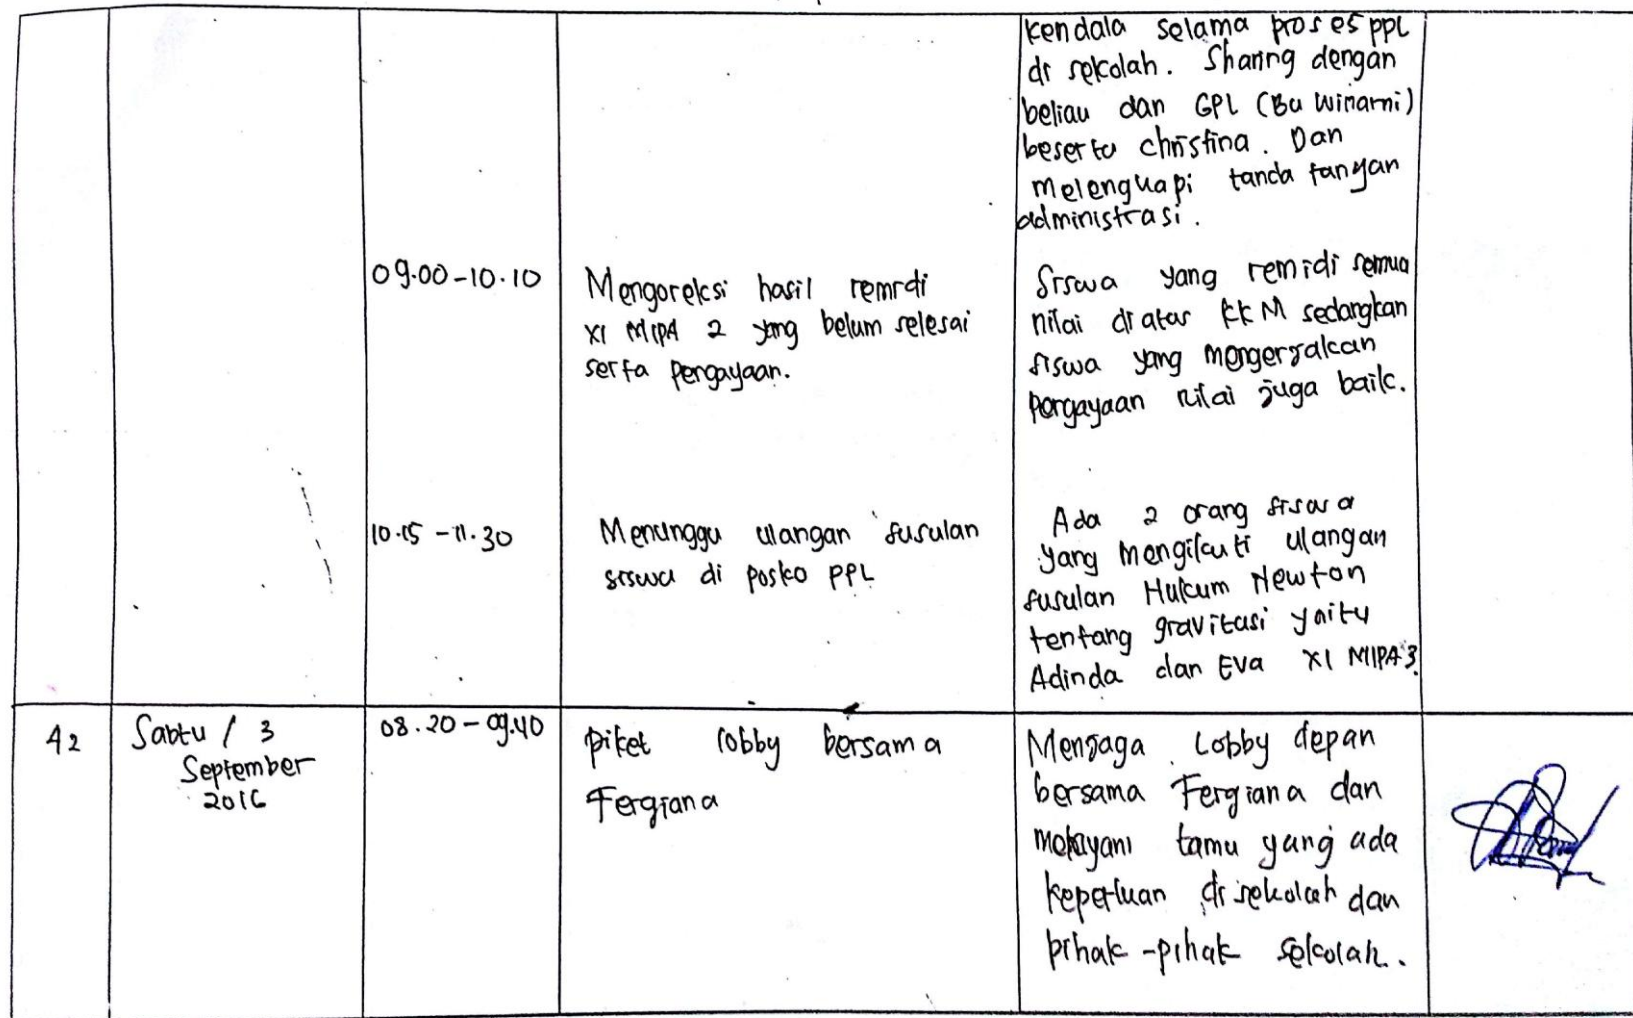 kendala selama proses ppl
di sekolah. Sharing dengan
beliau dan GPL (Bu Winarni)
beserta christina. Dan
melengkapi tanda tangan
administrasi.
09.00-10.10
Mengoreksi hasil remidi
XI MIPA 2 yang belum selesai
serta pengayaan.
Siswa yang remidi semua
nilai diatas KKM sedangkan
siswa yang mengerjakan
pengayaan nilai juga baik.
10.15 - 11.30
Menunggu ulangan susulan
siswa di posko PPL
Ada 2 orang siswa
yang mengikuti ulangan
susulan Hukum Newton
tentang gravitasi yaitu
Adinda dan Eva XI MIPA 3.
42
Sabtu / 3
September
2016
08.20 - 09.40
piket lobby bersama
Fergiana
Menjaga Lobby depan
bersama Fergiana dan
melayani tamu yang ada
keperluan di sekolah dan
pihak-pihak sekolah.